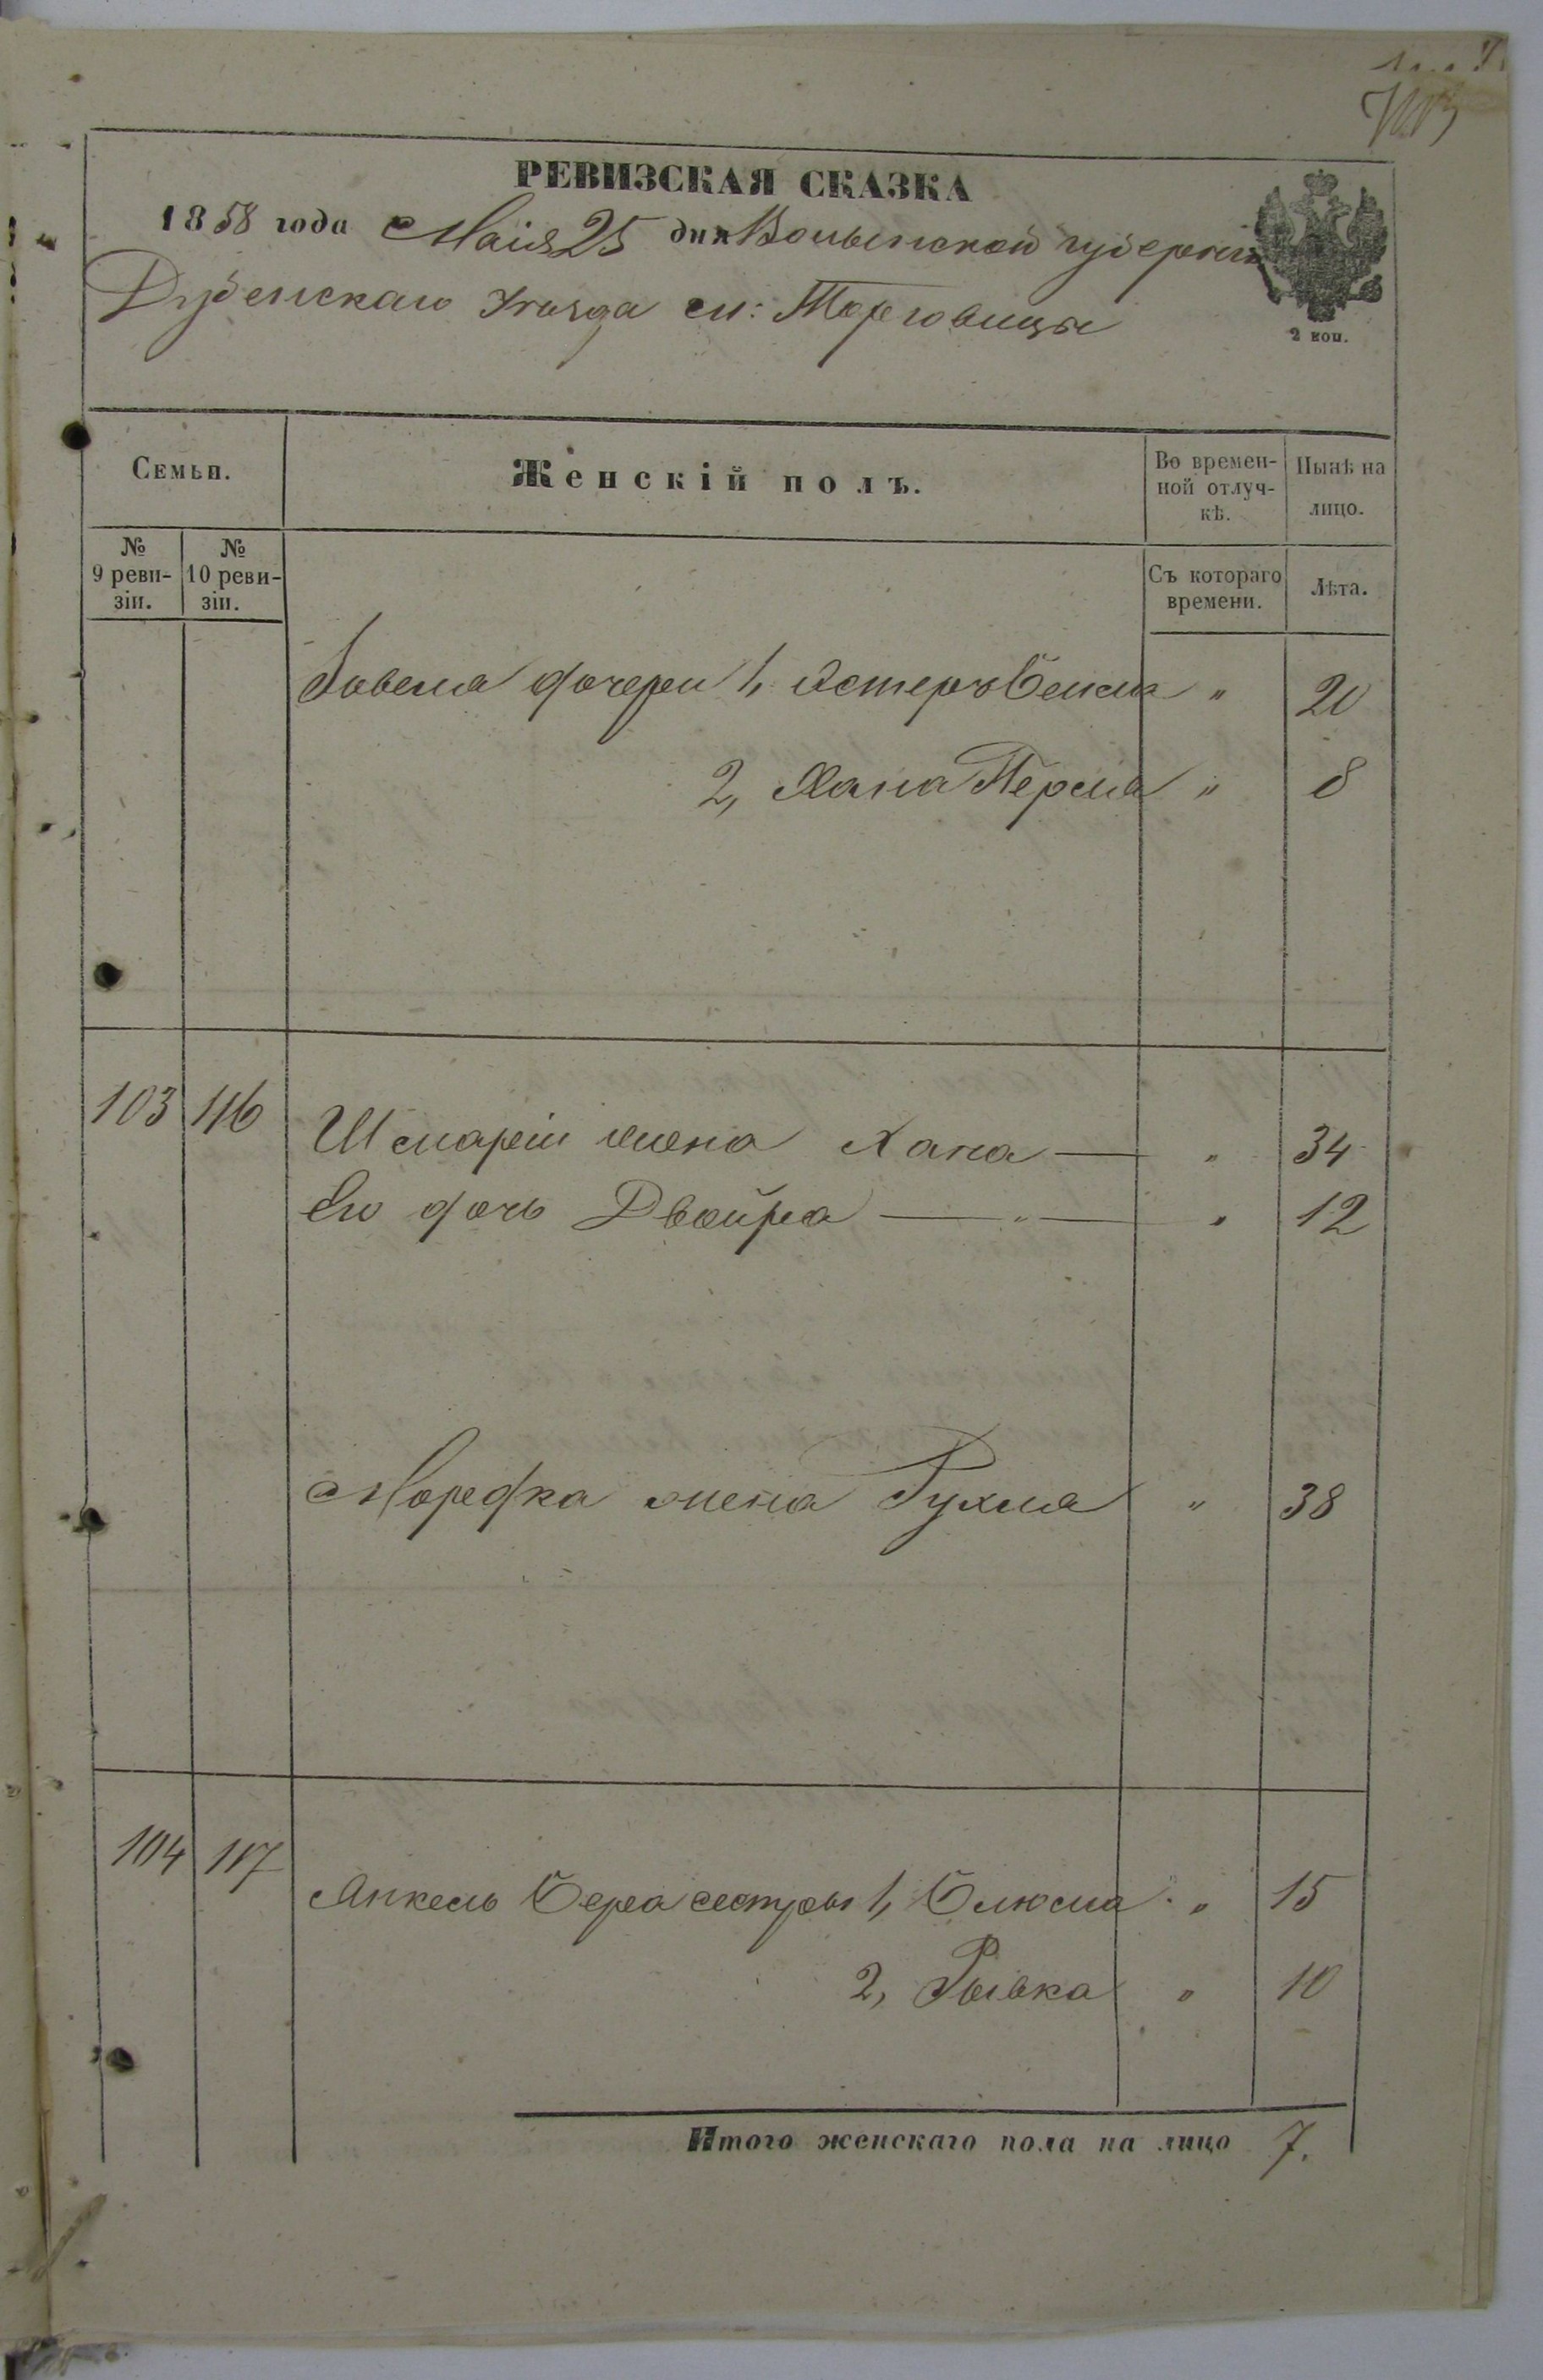 РЕВИЗСКАЯ СКАЗКА
1858 года Маія 25 дня Волынской губерніи
Дубенскаго Уезда м: Торговицы
2 коп.
Семьи.
Женскій полъ.
Во времен-
ной отлуч-
кѣ.
Нынѣ на
лицо.
№
9 реви-
зіи.
№
10 реви-
зіи.
Съ котораго
времени.
Лѣта.
дочери 1, Естеръ Бейла " 20
2, Хана Перля " 8
103 116 Шмарiи жена Хана — " 34
Его дочь Двойра — " — " 12
Мордка жена Рухля " 38
104 117
Янкель Бера сестры 1, Блюма " 15
2, Рывка " 10
Итого женскаго пола на лицо 7.